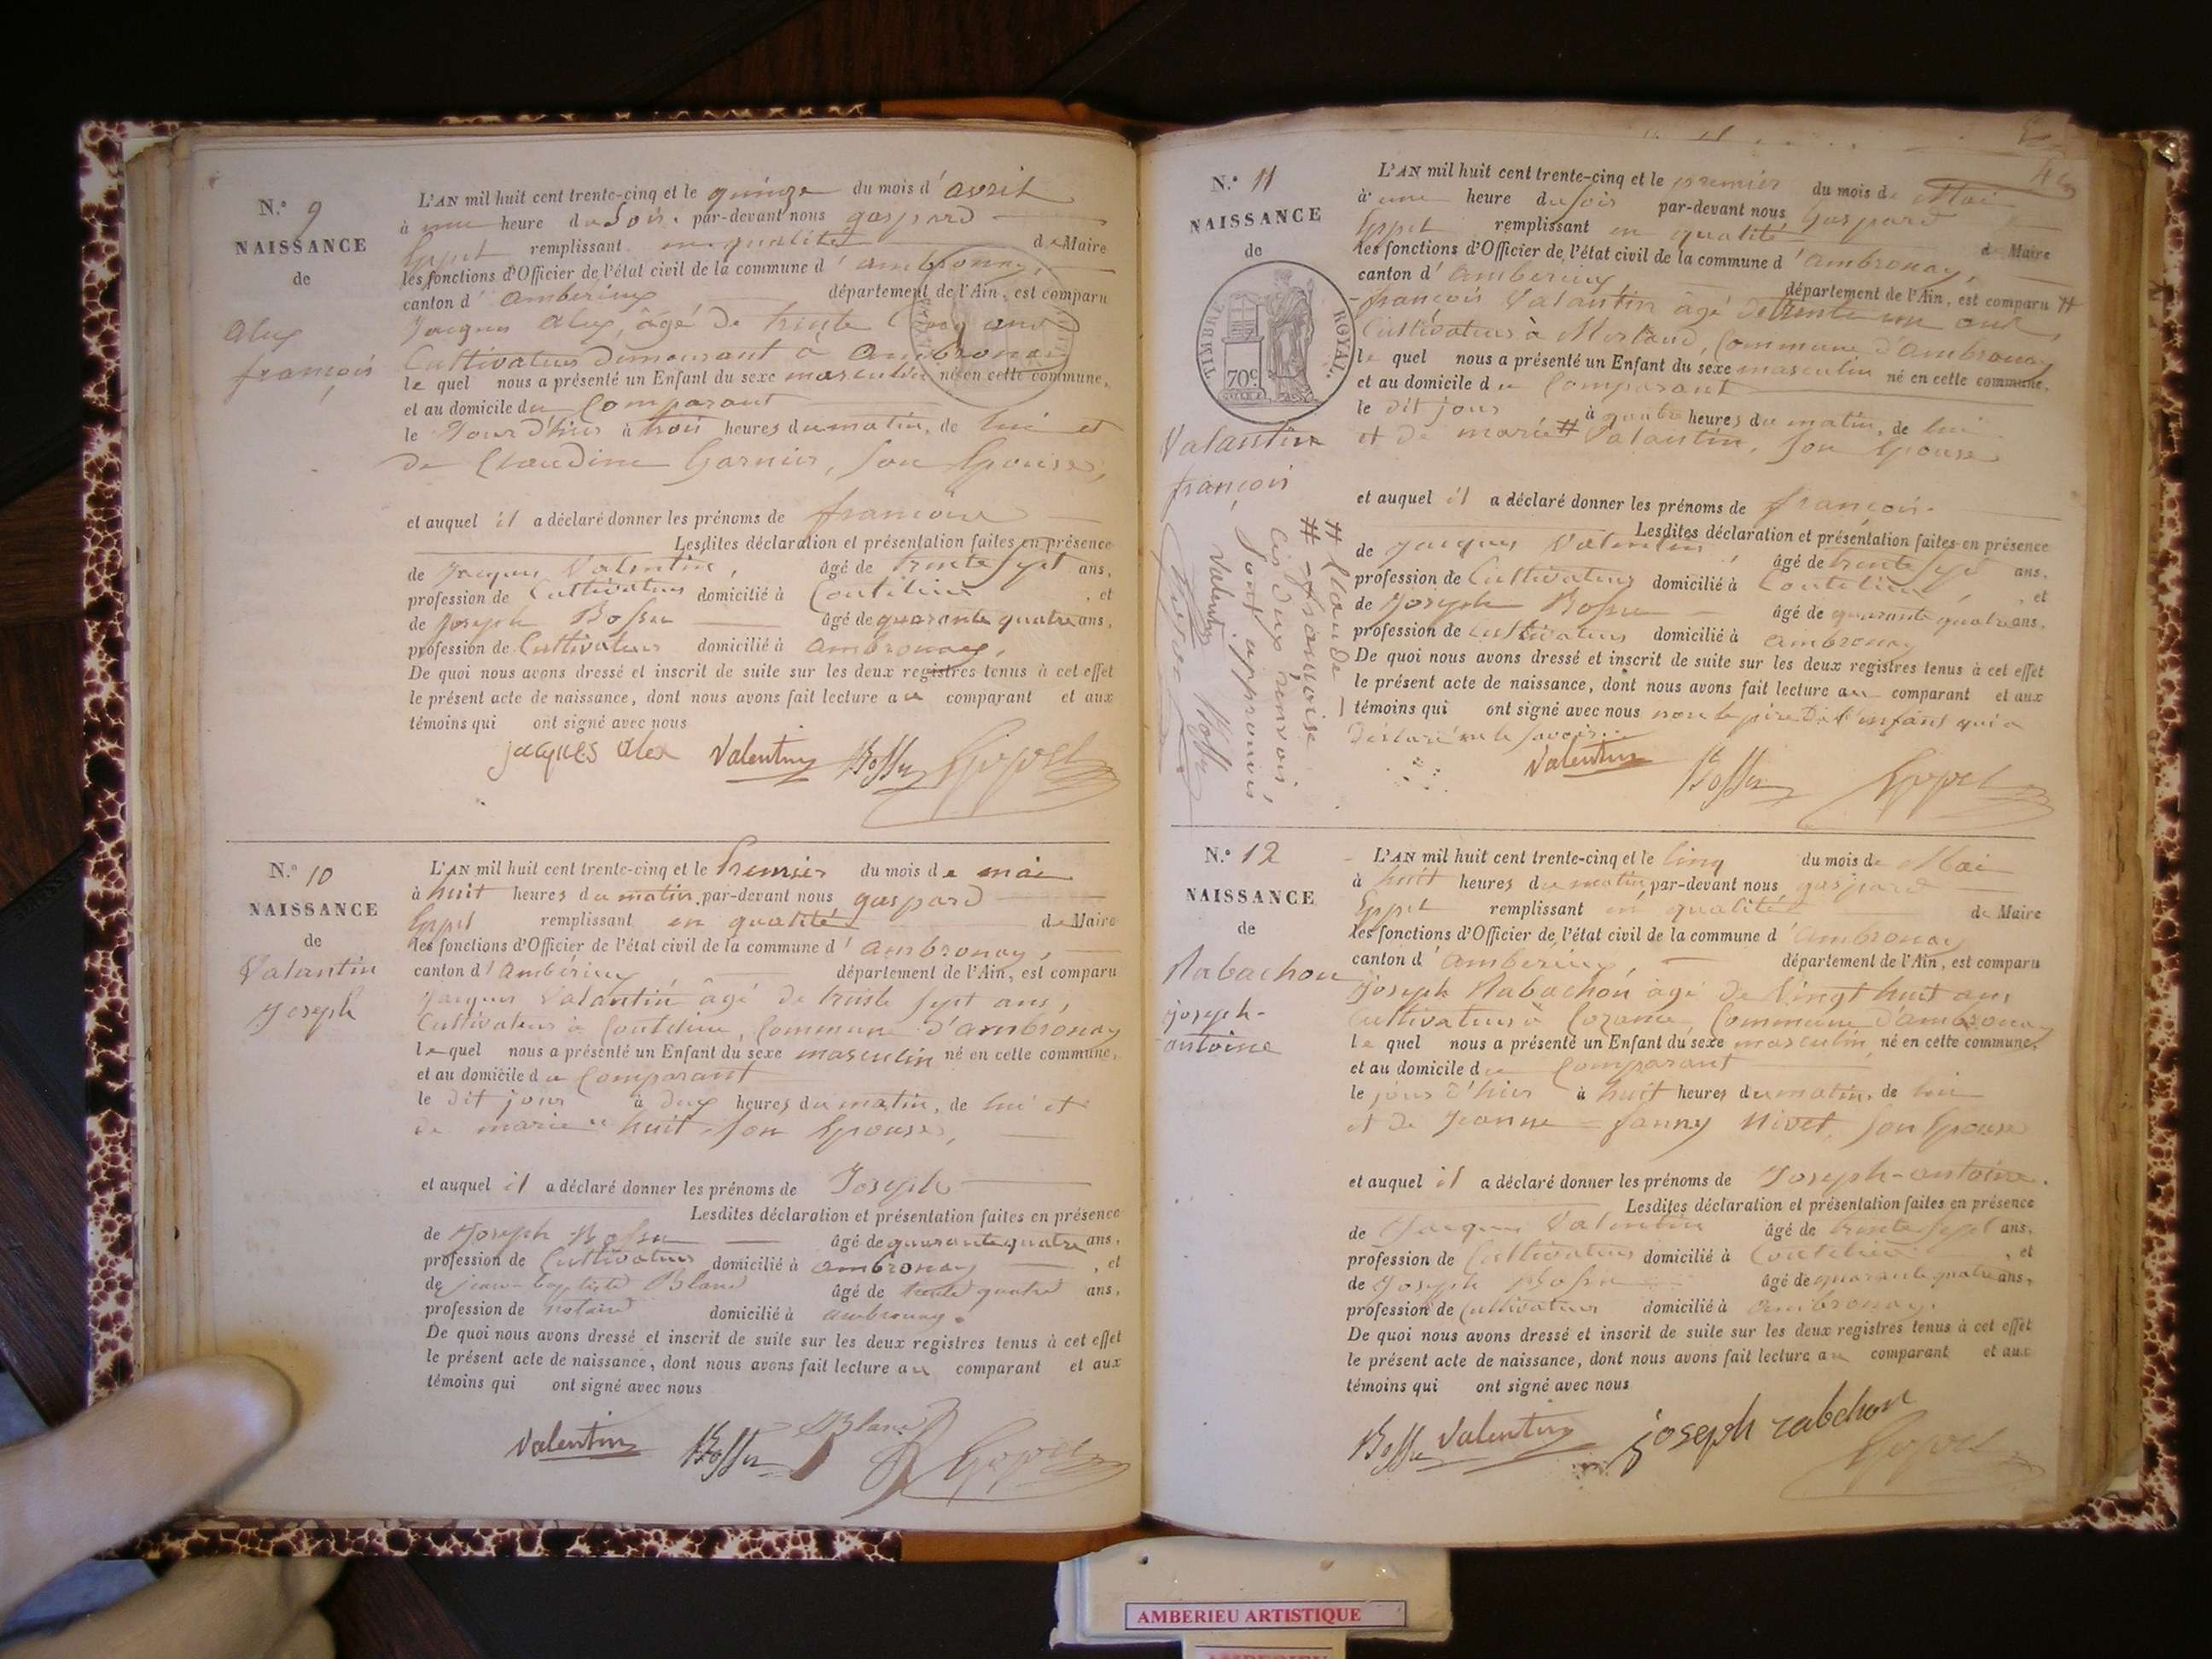 N.º 9
NAISSANCE
de
Alex
françois
L'AN mil huit cent trente-cinq et le quinze du mois d'avril
à une heure du Soir. par-devant nous gaspard
remplissant en qualité de Maire
les fonctions d'Officier de l'état civil de la commune d'ambronay,
canton d'ambérieux département de l'Ain, est comparu
Jacques Alex, âgé de trente Cinq ans
Cultivateur demeurant à Ambronay
lequel nous a présenté un Enfant du sexe masculin né en cette commune,
et au domicile du Comparant
le Jour d'hier à trois heures du matin, de lui et
de Claudine Garnier, son Epouse,
et auquel il a déclaré donner les prénoms de françois
Lesdites déclaration et présentation faites en présence
de Jacques Valentin, âgé de trente sept ans,
profession de Cultivateur domicilié à Coutelieu, et
de Joseph Bossu âgé de quarante quatre ans,
profession de Cultivateur domicilié à ambronay,
De quoi nous avons dressé et inscrit de suite sur les deux registres tenus à cet effet
le présent acte de naissance, dont nous avons fait lecture au comparant et aux
témoins qui ont signé avec nous
jacques alex Valentin Bossu
N.º 10
NAISSANCE
de
Valantin
Joseph
L'AN mil huit cent trente-cinq et le Premier du mois de mai
à huit heures du matin, par-devant nous gaspard
remplissant en qualité de Maire
les fonctions d'Officier de l'état civil de la commune d'ambronay,
canton d'Ambérieux département de l'Ain, est comparu
Jacques Valantin âgé de trente sept ans,
Cultivateur à Coutelieu, Commune d'ambronay
lequel nous a présenté un Enfant du sexe masculin né en cette commune,
et au domicile du Comparant
le dit jour à deux heures du matin, de lui et
de marie huit son Epouse,
et auquel il a déclaré donner les prénoms de Joseph
Lesdites déclaration et présentation faites en présence
de Joseph Bossu âgé de quarante quatre ans,
profession de Cultivateur domicilié à ambronay, et
de jean-baptiste Blanc âgé de trente quatre ans,
profession de notaire domicilié à ambronay.
De quoi nous avons dressé et inscrit de suite sur les deux registres tenus à cet effet
le présent acte de naissance, dont nous avons fait lecture au comparant et aux
témoins qui ont signé avec nous
Valentin Bossu Blanc
N.º 11
NAISSANCE
de
TIMBRE ROYAL.
70c
Valantin
françois
# Claude
# françoise
Ces deux renvois
sont approuvés
Valentin Bossu
L'AN mil huit cent trente-cinq et le premier du mois de Mai
à une heure du soir par-devant nous Gaspard
remplissant en qualité de Maire
les fonctions d'Officier de l'état civil de la commune d'ambronay,
canton d'ambérieux département de l'Ain, est comparu #
françois Valantin âgé de trente un ans
Cultivateur à Merland, Commune d'ambronay
lequel nous a présenté un Enfant du sexe masculin né en cette commune,
et au domicile du Comparant
le dit jour à quatre heures du matin, de lui
et de marie # Valantin, son Epouse
et auquel il a déclaré donner les prénoms de françois.
Lesdites déclaration et présentation faites en présence
de Jacques Valentin, âgé de trente sept ans,
profession de Cultivateur domicilié à Coutelieu, et
de Joseph Bossu âgé de quarante quatre ans,
profession de Cultivateur domicilié à ambronay
De quoi nous avons dressé et inscrit de suite sur les deux registres tenus à cet effet
le présent acte de naissance, dont nous avons fait lecture au comparant et aux
témoins qui ont signé avec nous non le père de l'enfant qui a
déclaré ne le savoir.
Valentin Bossu
N.º 12
NAISSANCE
de
Rabachon
joseph-
antoine
L'AN mil huit cent trente-cinq et le Cinq du mois de Mai
à huit heures du matin, par-devant nous gaspard
remplissant en qualité de Maire
les fonctions d'Officier de l'état civil de la commune d'Ambronay
canton d'ambérieux département de l'Ain, est comparu
Joseph Rabachon âgé de Vingt huit ans
Cultivateur à Commune d'ambronay
lequel nous a présenté un Enfant du sexe masculin né en cette commune,
et au domicile du Comparant
le jour d'hier à huit heures du matin, de lui
et de Jeanne-fanny Nivet, son Epouse
et auquel il a déclaré donner les prénoms de Joseph-antoine.
Lesdites déclaration et présentation faites en présence
de Jacques Valentin âgé de trente sept ans,
profession de Cultivateur domicilié à Coutelieu, et
de Joseph Bossu âgé de quarante quatre ans,
profession de Cultivateur domicilié à ambronay.
De quoi nous avons dressé et inscrit de suite sur les deux registres tenus à cet effet
le présent acte de naissance, dont nous avons fait lecture au comparant et aux
témoins qui ont signé avec nous
Bossu Valentin joseph rabchon
AMBERIEU ARTISTIQUE
AMBERIEU